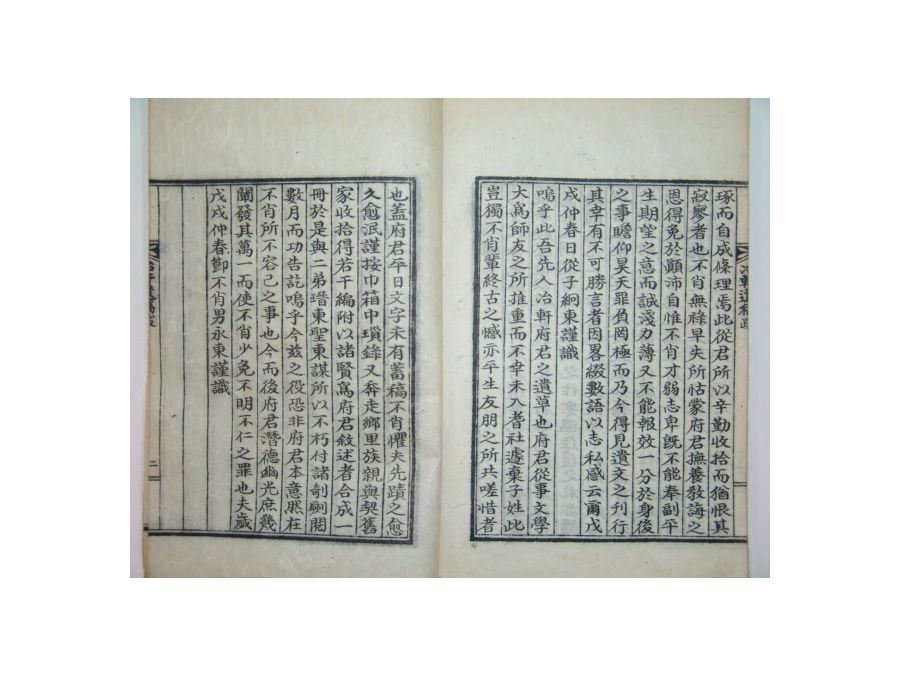 琢而自成條理焉此從君所以辛勤收拾而猶恨其
寂寥者也不肖無祿早失所怙蒙府君撫養敎誨之
恩得免於顚沛自惟不肖才弱志卑旣不能奉副平
生期望之意而誠淺力薄又不能報效一分於身後
之事瞻仰昊天罪負罔極而乃今得見遺文之刊行
其幸有不可勝言者因畧綴數語以志私感云爾戊
戌仲春日從子絅東謹識
嗚乎此吾先人冶軒府君之遺草也府君從事文學
大爲師友之所推重而不幸未入耆社遽棄子姓此
豈獨不肖輩終古之憾亦平生友朋之所共嗟惜者
也蓋府君平日文字未有蓄稿不肖懼夫先蹟之愈
久愈泯謹按巾箱中瑣錄又奔走鄉里族親與契舊
家收拾得若干編附以諸賢爲府君敘述者合成一
冊於是與二弟瑨東聖東謀所以不朽付諸剞劂閱
數月而功告訖嗚乎今兹之役恐非府君本意然在
不肖所不容已之事也今而後府君潛德幽光庶幾
闡發其萬一而使不肖少免不明不仁之罪也夫歲
戊戌仲春節不肖男永東謹識
二